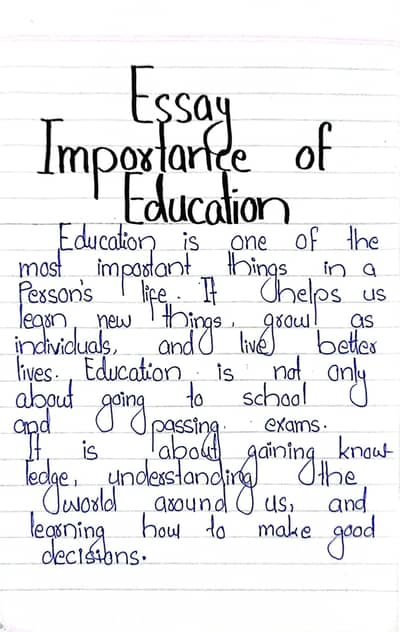 Essay
Importance of
Education
Education is one of the
most important things in a
Person's life. It helps us
learn new things, grow as
individuals, and live better
lives. Education is not only
about going to school
and passing exams.
It is about gaining know-
ledge, understanding the
world around us, and
learning how to make good
decisions.